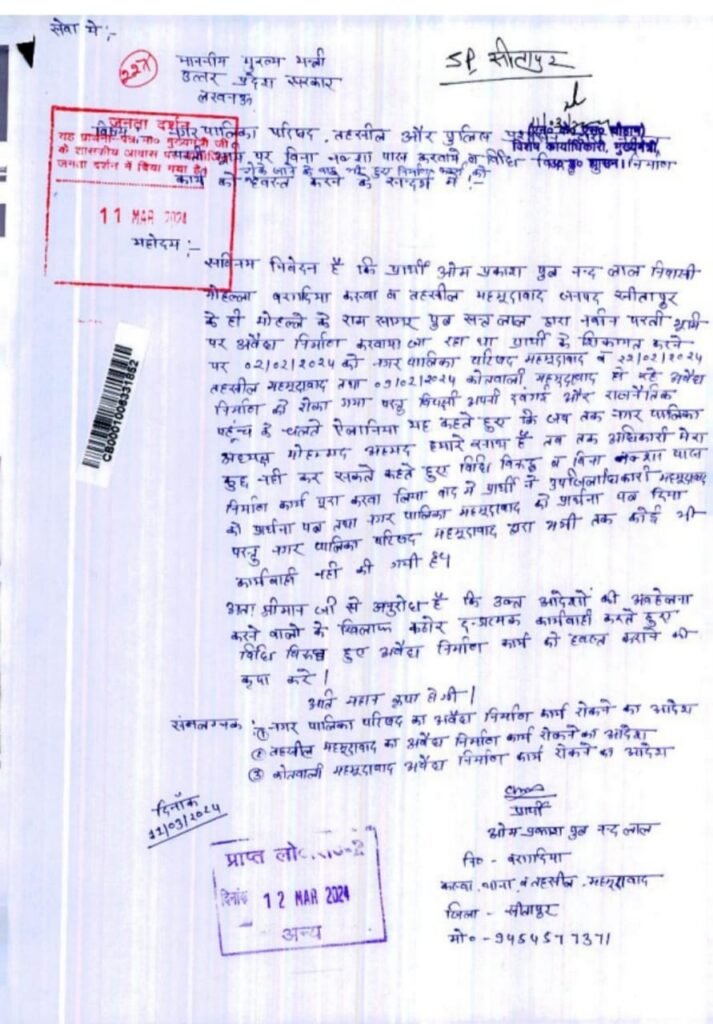 सेवा में :-
227
माननीय मुख्य मन्त्री
उत्तर प्रदेश सरकार
लखनऊ
SP सीतापुर
जनता दर्शन
यह प्रार्थना-पत्र मा० मुख्यमंत्री जी
के शासकीय आवास पर
जनता दर्शन में दिया गया है।
11 MAR 2024
विशेष कार्याधिकारी, मुख्यमंत्री,
उ० प्र० शासन।
विषय नगर पालिका परिषद, तहसील और पुलिस
भूमि पर बिना नक्शा पास करवाये व विधि निर्माण
रोके जाने के बाद भी हुए निर्माण
कार्य को ध्वस्त करने के सन्दर्भ में :-
महोदय :-
सविनय निवेदन है कि प्रार्थी ओम प्रकाश पुत्र नन्द लाल निवासी
मोहल्ला बरगदिया कस्बा व तहसील महमूदाबाद जनपद सीतापुर
के ही मोहल्ले के राम सागर पुत्र सन्त लाल द्वारा नवीन परती भूमि
पर अवैध निर्माण करवाया जा रहा था प्रार्थी के शिकायत करने
पर 02/02/2024 को नगर पालिका परिषद महमूदाबाद व 22/02/2024
तहसील महमूदाबाद तथा 09/02/2024 कोतवाली महमूदाबाद हो रहे अवैध
निर्माण को रोका गया परन्तु विपक्षी अपनी दबंगई और राजनैतिक
पहुंच के चलते ऐलानिया यह कहते हुए कि जब तक नगर पालिका
अध्यक्ष मोहम्मद अहमद हमारे साथ है तब तक अधिकारी मेरा
कुछ नही कर सकते कहते हुए विधि विरूद्ध व बिना नक्शा पास
निर्माण कार्य पूरा करवा लिया बाद में प्रार्थी ने उपजिलाधिकारी महमूदाबाद
को प्रार्थना पत्र तथा नगर पालिका महमूदाबाद को प्रार्थना पत्र दिया
परन्तु नगर पालिका परिषद महमूदाबाद द्वारा अभी तक कोई भी
कार्यवाही नही की गयी है।
अतः श्रीमान जी से अनुरोध है कि उक्त आदेशों की अवहेलना
करने वालो के खिलाफ कठोर दण्डात्मक कार्यवाही करते हुए
विधि विरूद्ध हुए अवैध निर्माण कार्य को ध्वस्त कराने की
कृपा करे।
अति महान कृपा होगी।
संलग्नक : ① नगर पालिका परिषद का अवैध निर्माण कार्य रोकने का आदेश
② तहसील महमूदाबाद का अवैध निर्माण कार्य रोकने का आदेश
③ कोतवाली महमूदाबाद अवैध निर्माण कार्य रोकने का आदेश
CB0001006331852
दिनाँक
12/03/2024
प्रार्थी
ओम प्रकाश पुत्र नन्द लाल
नि० - बरगदिया
कस्बा, थाना व तहसील, महमूदाबाद
जिला - सीतापुर
मो० - 9454577371
प्राप्त लो०
दिनांक 12 MAR 2024
अन्य